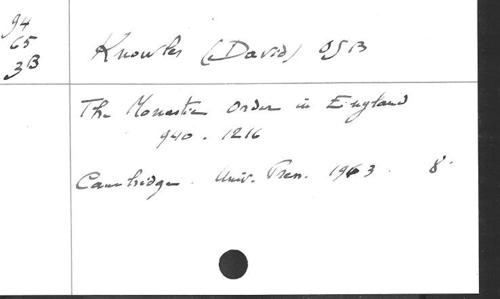 94
65
3B
Knowles (David) OSB
The Monastic Order in England
940 - 1216
Cambridge. Univ. Press. 1963. 8°